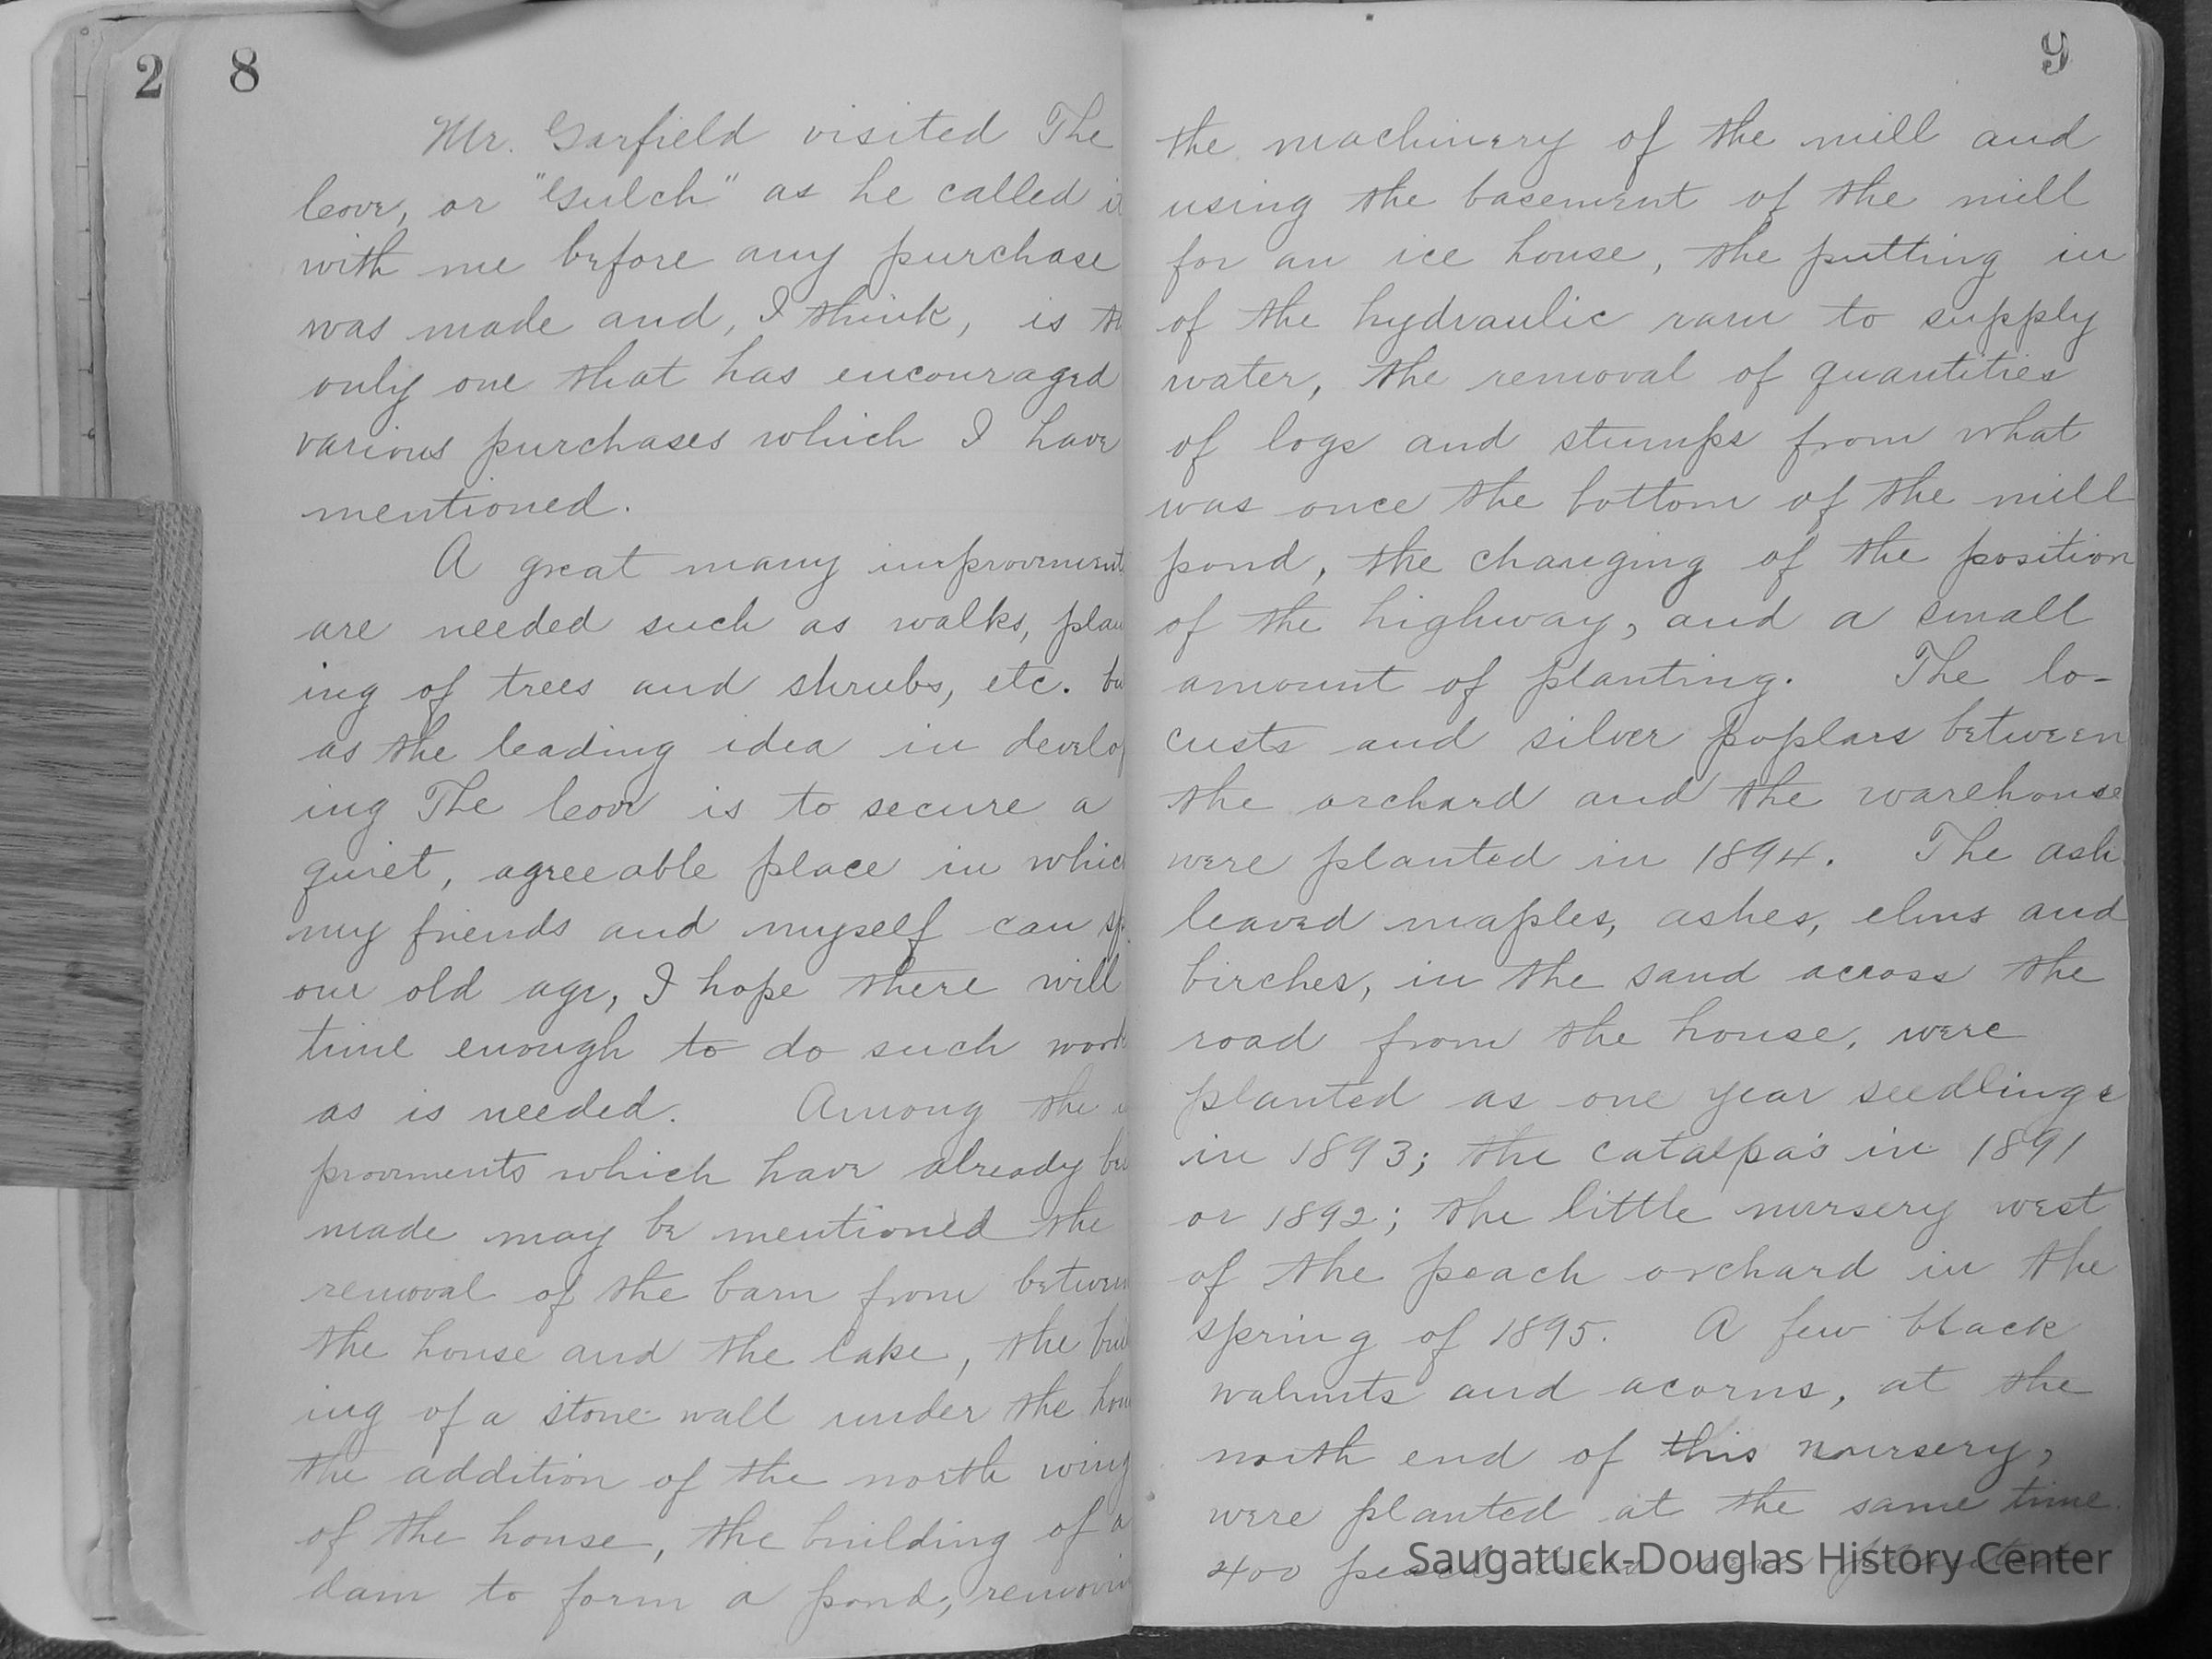 2
8
Mr. Garfield visited The
Cove, or "Gulch" as he called i
with me before any purchase
was made and, I think, is th
only one that has encouraged
various purchases which I have
mentioned.
A great many improvement
are needed such as walks, plan
ing of trees and shrubs, etc. bu
as the leading idea in develop
ing The Cove is to secure a
quiet, agreeable place in which
my friends and myself can sp
our old age, I hope there will
time enough to do such work
as is needed. Among the
provements which have already be
made may be mentioned the
removal of the barn from between
the house and the lake, the buil
ing of a stone wall under the hou
the addition of the north wing
of the house, the building of a
dam to form a pond, removin
9
the machinery of the mill and
using the basement of the mill
for an ice house, the putting in
of the hydraulic ram to supply
water, the removal of quantities
of logs and stumps from what
was once the bottom of the mill
pond, the changing of the position
of the highway, and a small
amount of planting. The lo-
custs and silver poplars between
the orchard and the warehouse
were planted in 1894. The ash
leaved maples, ashes, elms and
birches, in the sand across the
road from the house, were
planted as one year seedlings
in 1893; the catalpa's in 1891
or 1892; the little nursery west
of the peach orchard in the
spring of 1895. A few black
walnuts and acorns, at the
north end of this nursery,
were planted at the same time.
400 peach
Saugatuck-Douglas History Center